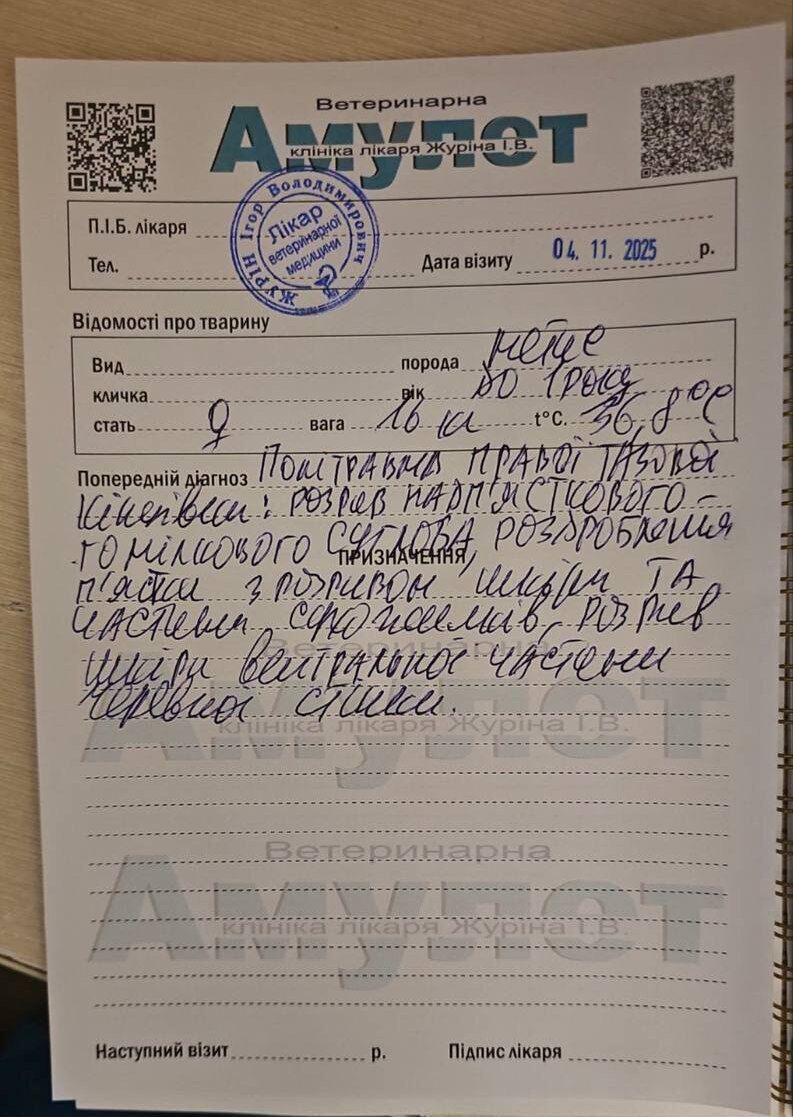 Ветеринарна
Амулет
клініка лікаря Журіна І.В.
П.І.Б. лікаря
ЖУРІН Ігор Володимирович
Лікар
ветеринарної
медицини
Тел. Дата візиту 04. 11. 2025 р.
Відомості про тварину
Вид порода метис
кличка вік до 1 року
стать ♀ вага 16 кг t°C. 36,8°C
Попередній діагноз Політравма правої тазової
кінцівки: розрив надп'ясткового-
гомілкового суглоба, роздроблення
ПРИЗНАЧЕННЯ
п'ястки з розривом шкіри та
частини сухожилків, розрив
шкіри вентральної частини
черевної стінки.
Ветеринарна
Амулет
клініка лікаря Журіна І.В.
Ветеринарна
Амулет
клініка лікаря Журіна І.В.
Наступний візит р. Підпис лікаря